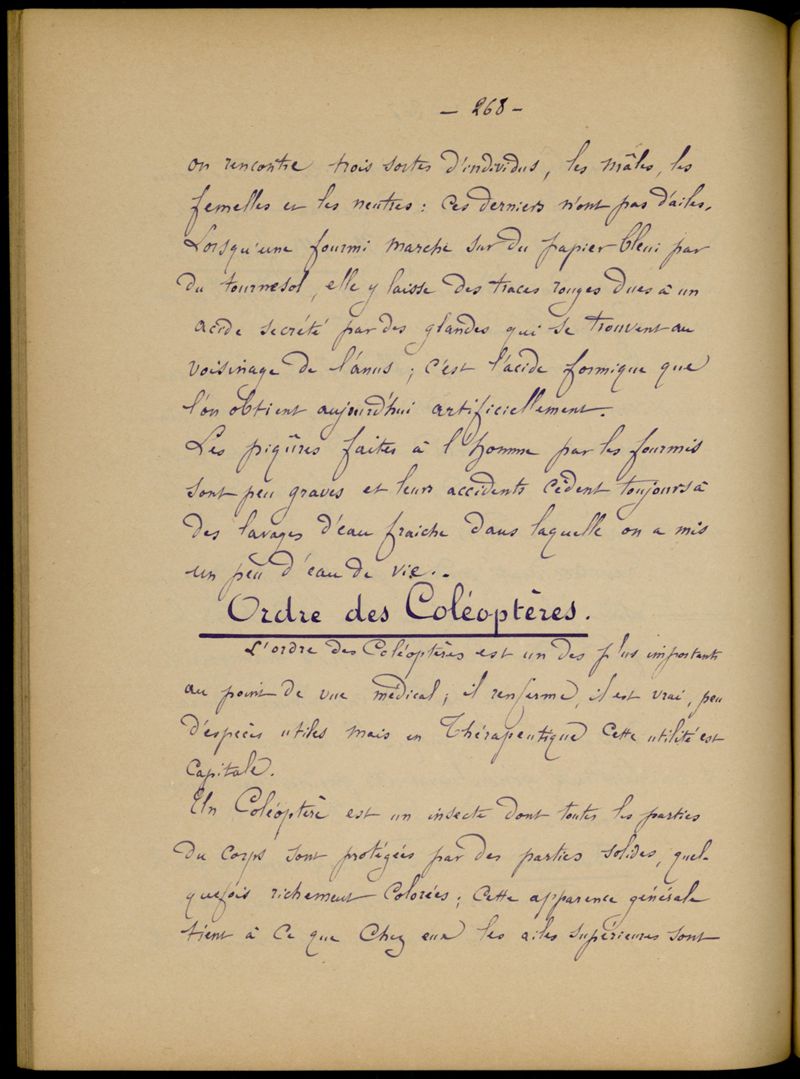 — 268 —
on rencontre trois sortes d'individus, les mâles, les
femelles et les neutres : ces derniers n'ont pas d'ailes.
Lorsqu'une fourmi marche sur du papier bleui par
du tournesol, elle y laisse des traces rouges dues à un
acide secrété par des glandes qui se trouvent au
voisinage de l'anus ; c'est l'acide formique que
l'on obtient aujourd'hui artificiellement.
Les piqûres faites à l'homme par les fourmis
sont peu graves et leurs accidents cèdent toujours à
des lavages d'eau fraiche dans laquelle on a mis
un peu d'eau de vie.
Ordre des Coléoptères.
L'ordre des Coléoptères est un des plus importants
au point de vue médical ; il renferme, il est vrai, peu
d'espèces utiles mais en Thérapeutique cette utilité est
Capitale.
Un Coléoptère est un insecte dont toutes les parties
du corps sont protégées par des parties solides, quel-
quefois richement colorées ; cette apparence générale
tient à ce que chez eux les ailes supérieures sont